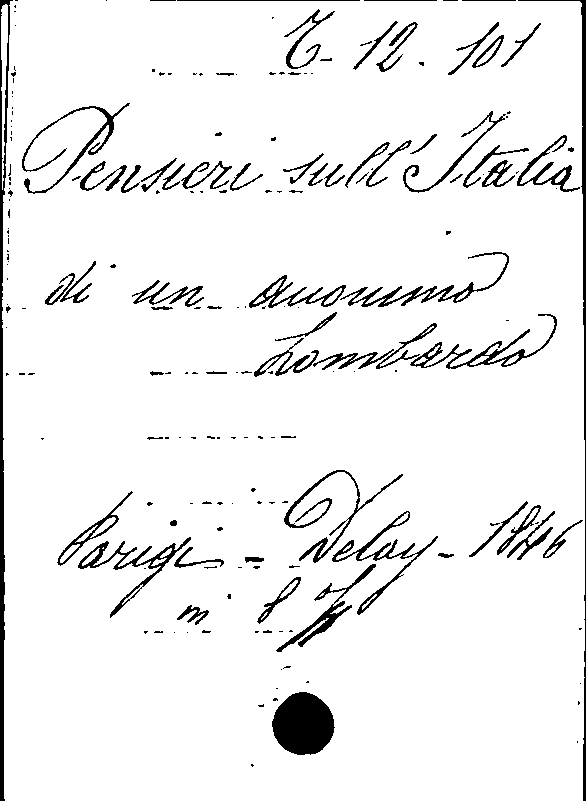 T. 12. 101
Pensieri sull'Italia
di un anonimo
Lombardo
Parigi - Delay - 1846
in 8